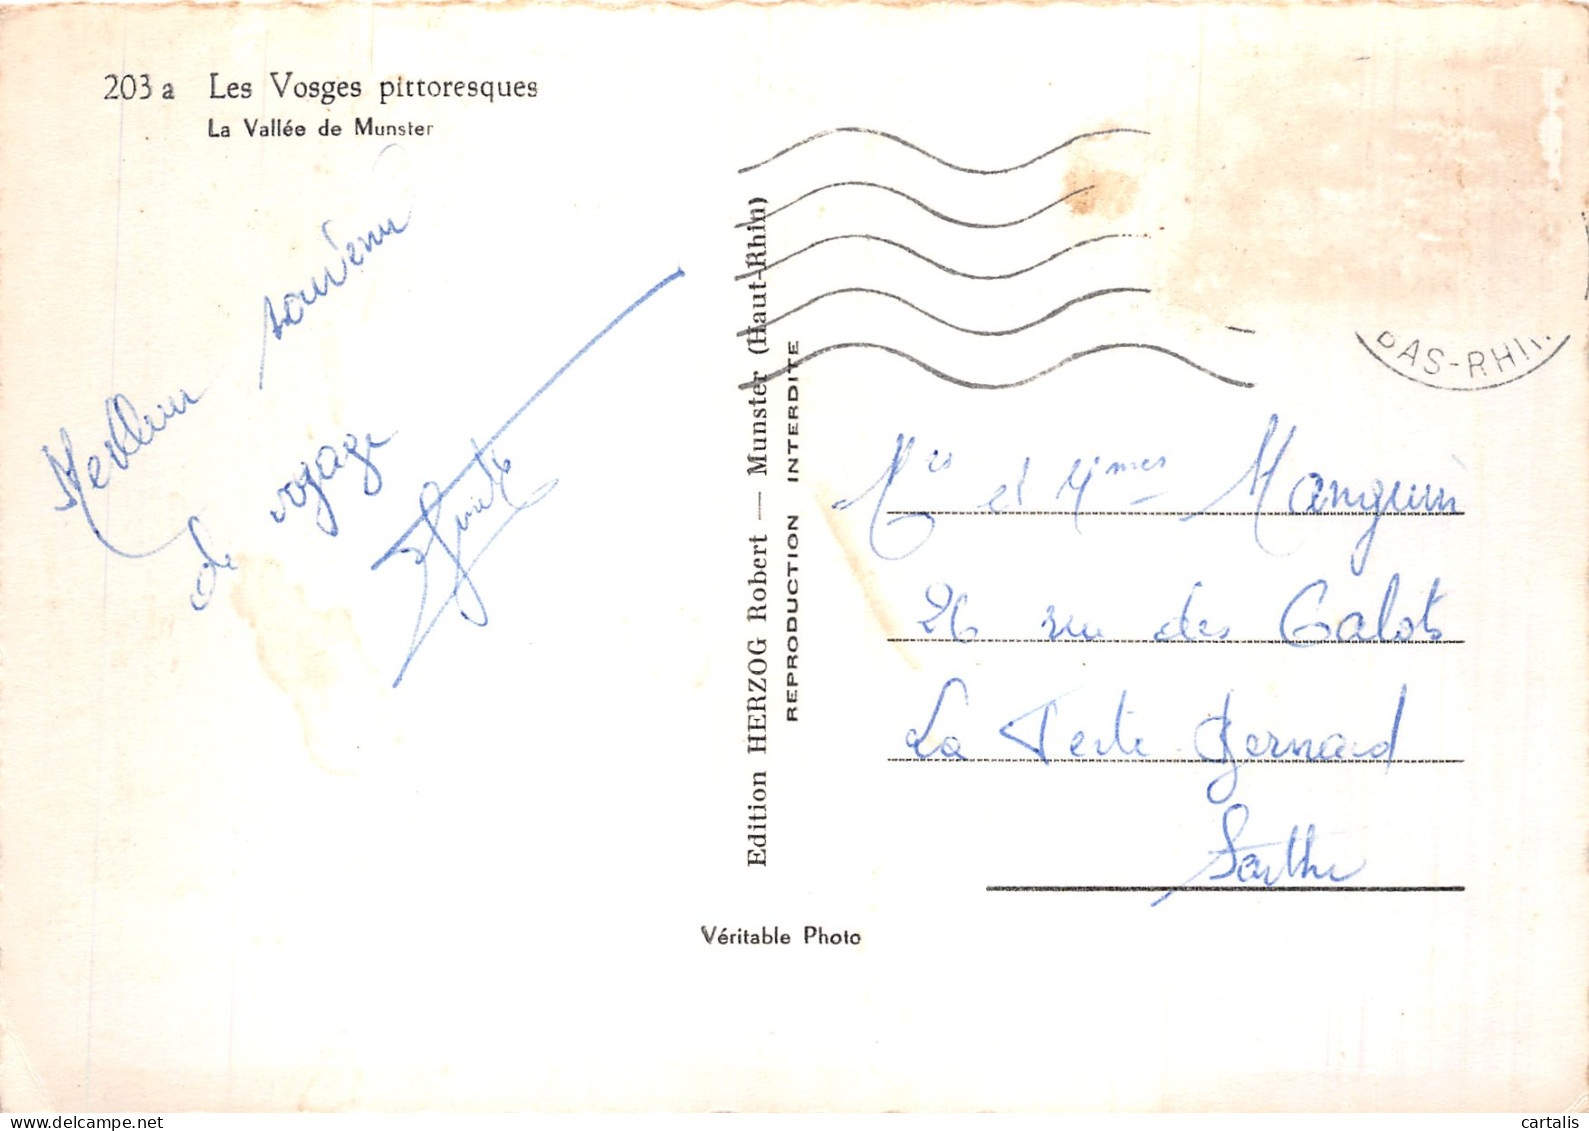 203 a Les Vosges pittoresques
La Vallée de Munster
Meilleur souvenir
de voyage
Edition HERZOG Robert — Munster (Haut-Rhin)
REPRODUCTION INTERDITE
BAS-RHIN
et Mmes Manguin
26 rue des Calots
La Ferté Bernard
Sarthe
Véritable Photo
cartalis